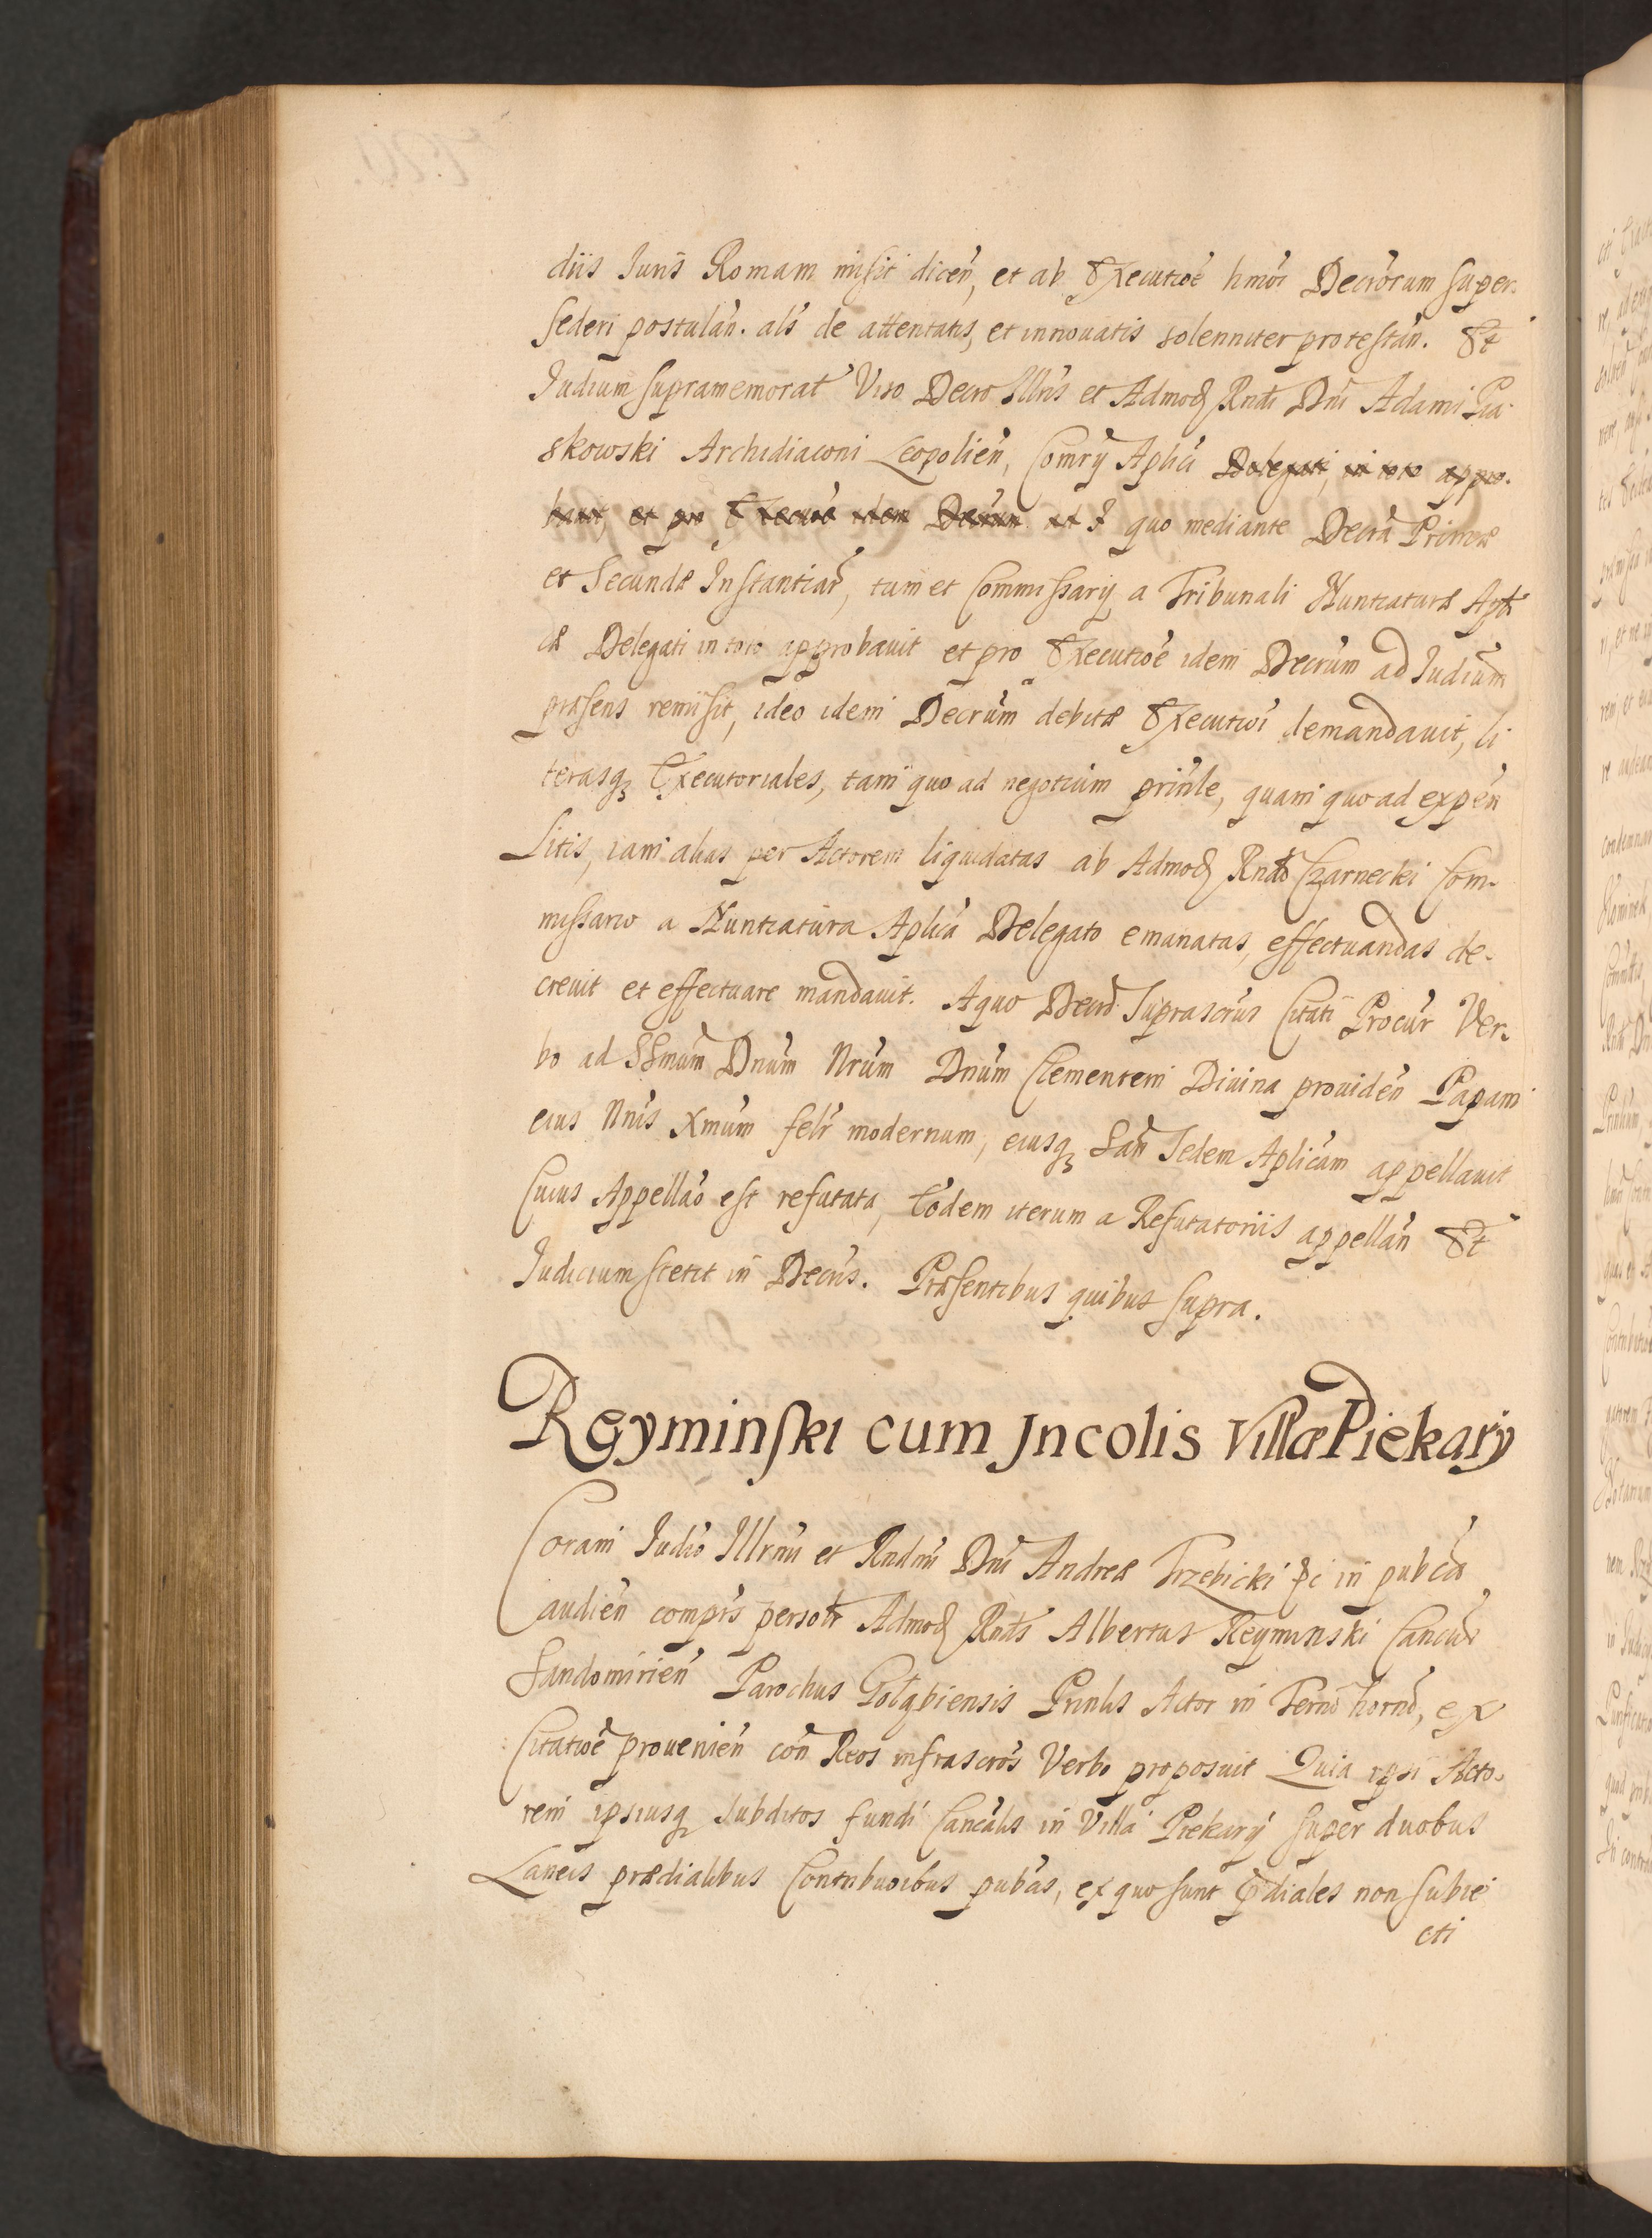 diis Juris Romam misit dicen̄, et ab Executiōē hmōi Decrōrum super
sederi postulan̄. als̄ de attentatis, et innouatis solenniter protestan̄. Et
Judium supramemorat Viso Decrō Illris et Admodꝫ Rndi Dnī Adami Pia
skowski Archidiaconi Leopolien̄, Comrȳ Aplīci Delegati, in toto appro-
bauit, et pro Executiōē idem Decrūm ad J quo mediante Decrā Primæ
et Secundæ Instantiar̄, tum et Commissarij a Tribunali Nuntiaturæ Apli
cæ Delegati in toto approbauit et pro Executiōē idem Decrūm ad Judium
præsens remisit, ideo idem Decrūm debitæ Executiōi demandauit, li
terasqꝫ Executoriales, tam quo ad negotium prinl̄e, quam quo ad expen̄
Litis, iam alias per Actorem liquidatas ab Admodꝫ Rndo Czarnecki Com-
missario a Nuntiatura Aplīca Delegato emanatas, effectuandas de-
creuit et effectuare mandauit. A quo Decrō Suprascrūs Citati Procur̄ Ver-
bo ad SSmum Dnum Nrum Dnum Clementem Diuina prouiden̄ Papam
eius Nnis Xmum felr̄ modernum, eiusqꝫ San̄ Sedem Aplicam appellauit
Cuius Appellaō est refutata, Eodem iterum a Refutatoriis appellan̄ Et
Judicium stetit in Decrīs. Præsentibus quibus supra.
Reyminski cum Jncolis Villæ Piekary
Coram Judiō Illrmi et Rndmi Dnī Andreæ Trzebicki &c in pubca
audien̄ compr̄s personlr̄ Admodꝫ Rnds Albertus Reyminski Cancus
Sandomirien̄ Parochus Gołąbiensis Prinlis Actor in Termō hornō, ex
Citatiōē prouenien̄ con̄ Reos infrascrōs Verbo proposuit Quia ipsi Acto-
rem ipsiusqꝫ subditos fundi Cancalis in Villa Piekary super duobus
Laneis prædialibus Contribuōibus pubās, ex quo sunt p̄diales non subie
cti